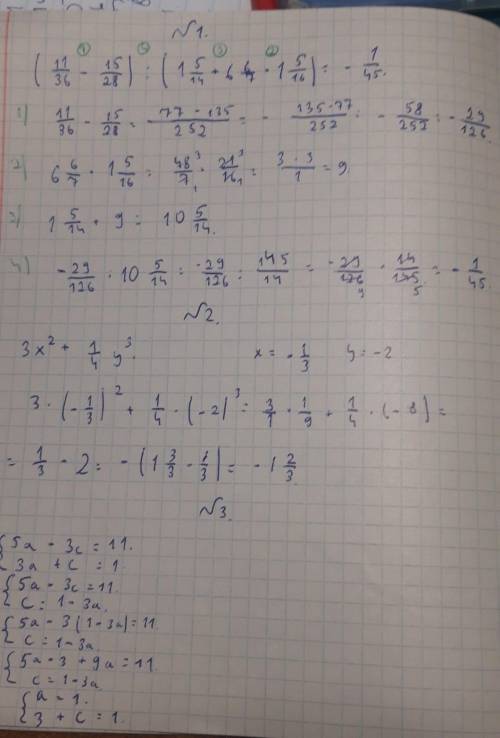 №1.
(11/36 - 15/28) : (1 5/14 + 6 6/7 · 1 5/16) = - 1/45.
1) 11/36 - 15/28 = 77 - 135/252 = - 135-77/252 = - 58/252 = - 29/126
2) 6 6/7 · 1 5/16 = 48/7 · 21/16 = 3 · 3/1 = 9
3) 1 5/14 + 9 = 10 5/14.
4) - 29/126 : 10 5/14 = -29/126 : 145/14 = -29/126 · 14/145 = - 1/45
№2.
3x² + 1/4 y³. x = - 1/3 y = -2
3 · (- 1/3)² + 1/4 · (-2)³ = 3/1 · 1/9 + 1/4 · (-8) =
= 1/3 - 2 = - (1 3/3 - 1/3) = - 1 2/3.
№3.
{5a - 3c = 11.
3a + c = 1.
{5a - 3c = 11
c = 1 - 3a.
{5a - 3(1 - 3a) = 11
c = 1 - 3a.
{5a - 3 + 9a = 11
c = 1 - 3a
{a = 1.
3 + c = 1.